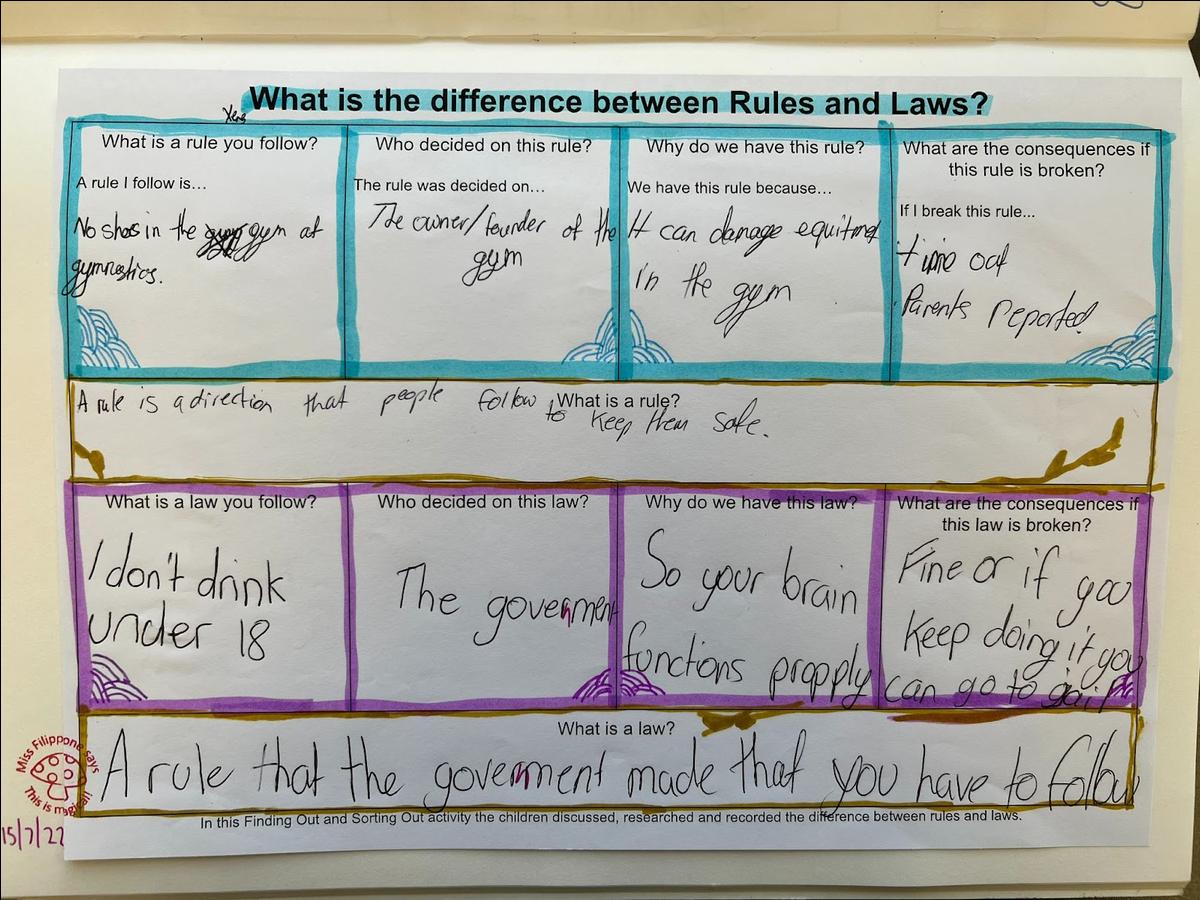 What is the difference between Rules and Laws?
What is a rule you follow?
A rule I follow is...
No shos in the gym at
gymnastics.
Who decided on this rule?
The rule was decided on...
The owner/founder of the
gym
Why do we have this rule?
We have this rule because...
It can damage equitment
in the gym
What are the consequences if
this rule is broken?
If I break this rule...
time out
Parents reported
What is a rule?
A rule is a direction that people follow
to keep them safe.
What is a law you follow?
I don't drink
under 18
Who decided on this law?
The government
Why do we have this law?
So your brain
functions propply
What are the consequences if
this law is broken?
Fine or if you
keep doing it you
can go to gail
What is a law?
A rule that the government made that you have to follow
In this Finding Out and Sorting Out activity the children discussed, researched and recorded the difference between rules and laws.
Miss Filippone says
This is magical!
15/7/22